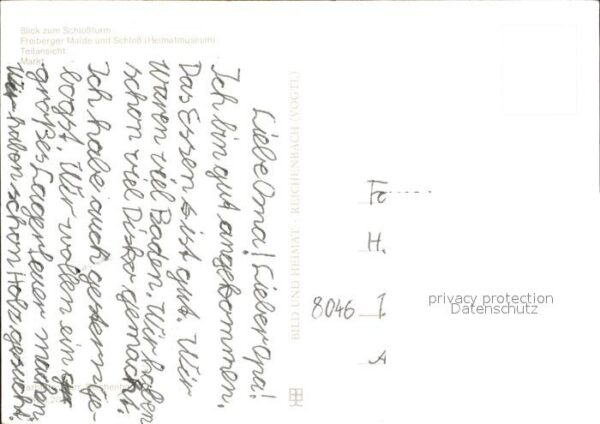 Blick zum Schloßturm
Freiberger Mulde und Schloß (Heimatmuseum)
Teilansicht
Markt
Liebe Oma! Lieber Opa!
Ich bin gut angekommen.
Das Essen ist gut. Wir
Waren viel Baden. Wir haben
schon viel Disko gemacht.
Ich habe auch gesternge-
bogt. Wir wollen ein
großes Lagerfeuer machen.
Wir haben schon Holz gesucht.
BILD UND HEIMAT · REICHENBACH (VOGTL)
H.
8046 I
A
privacy protection
Datenschutz